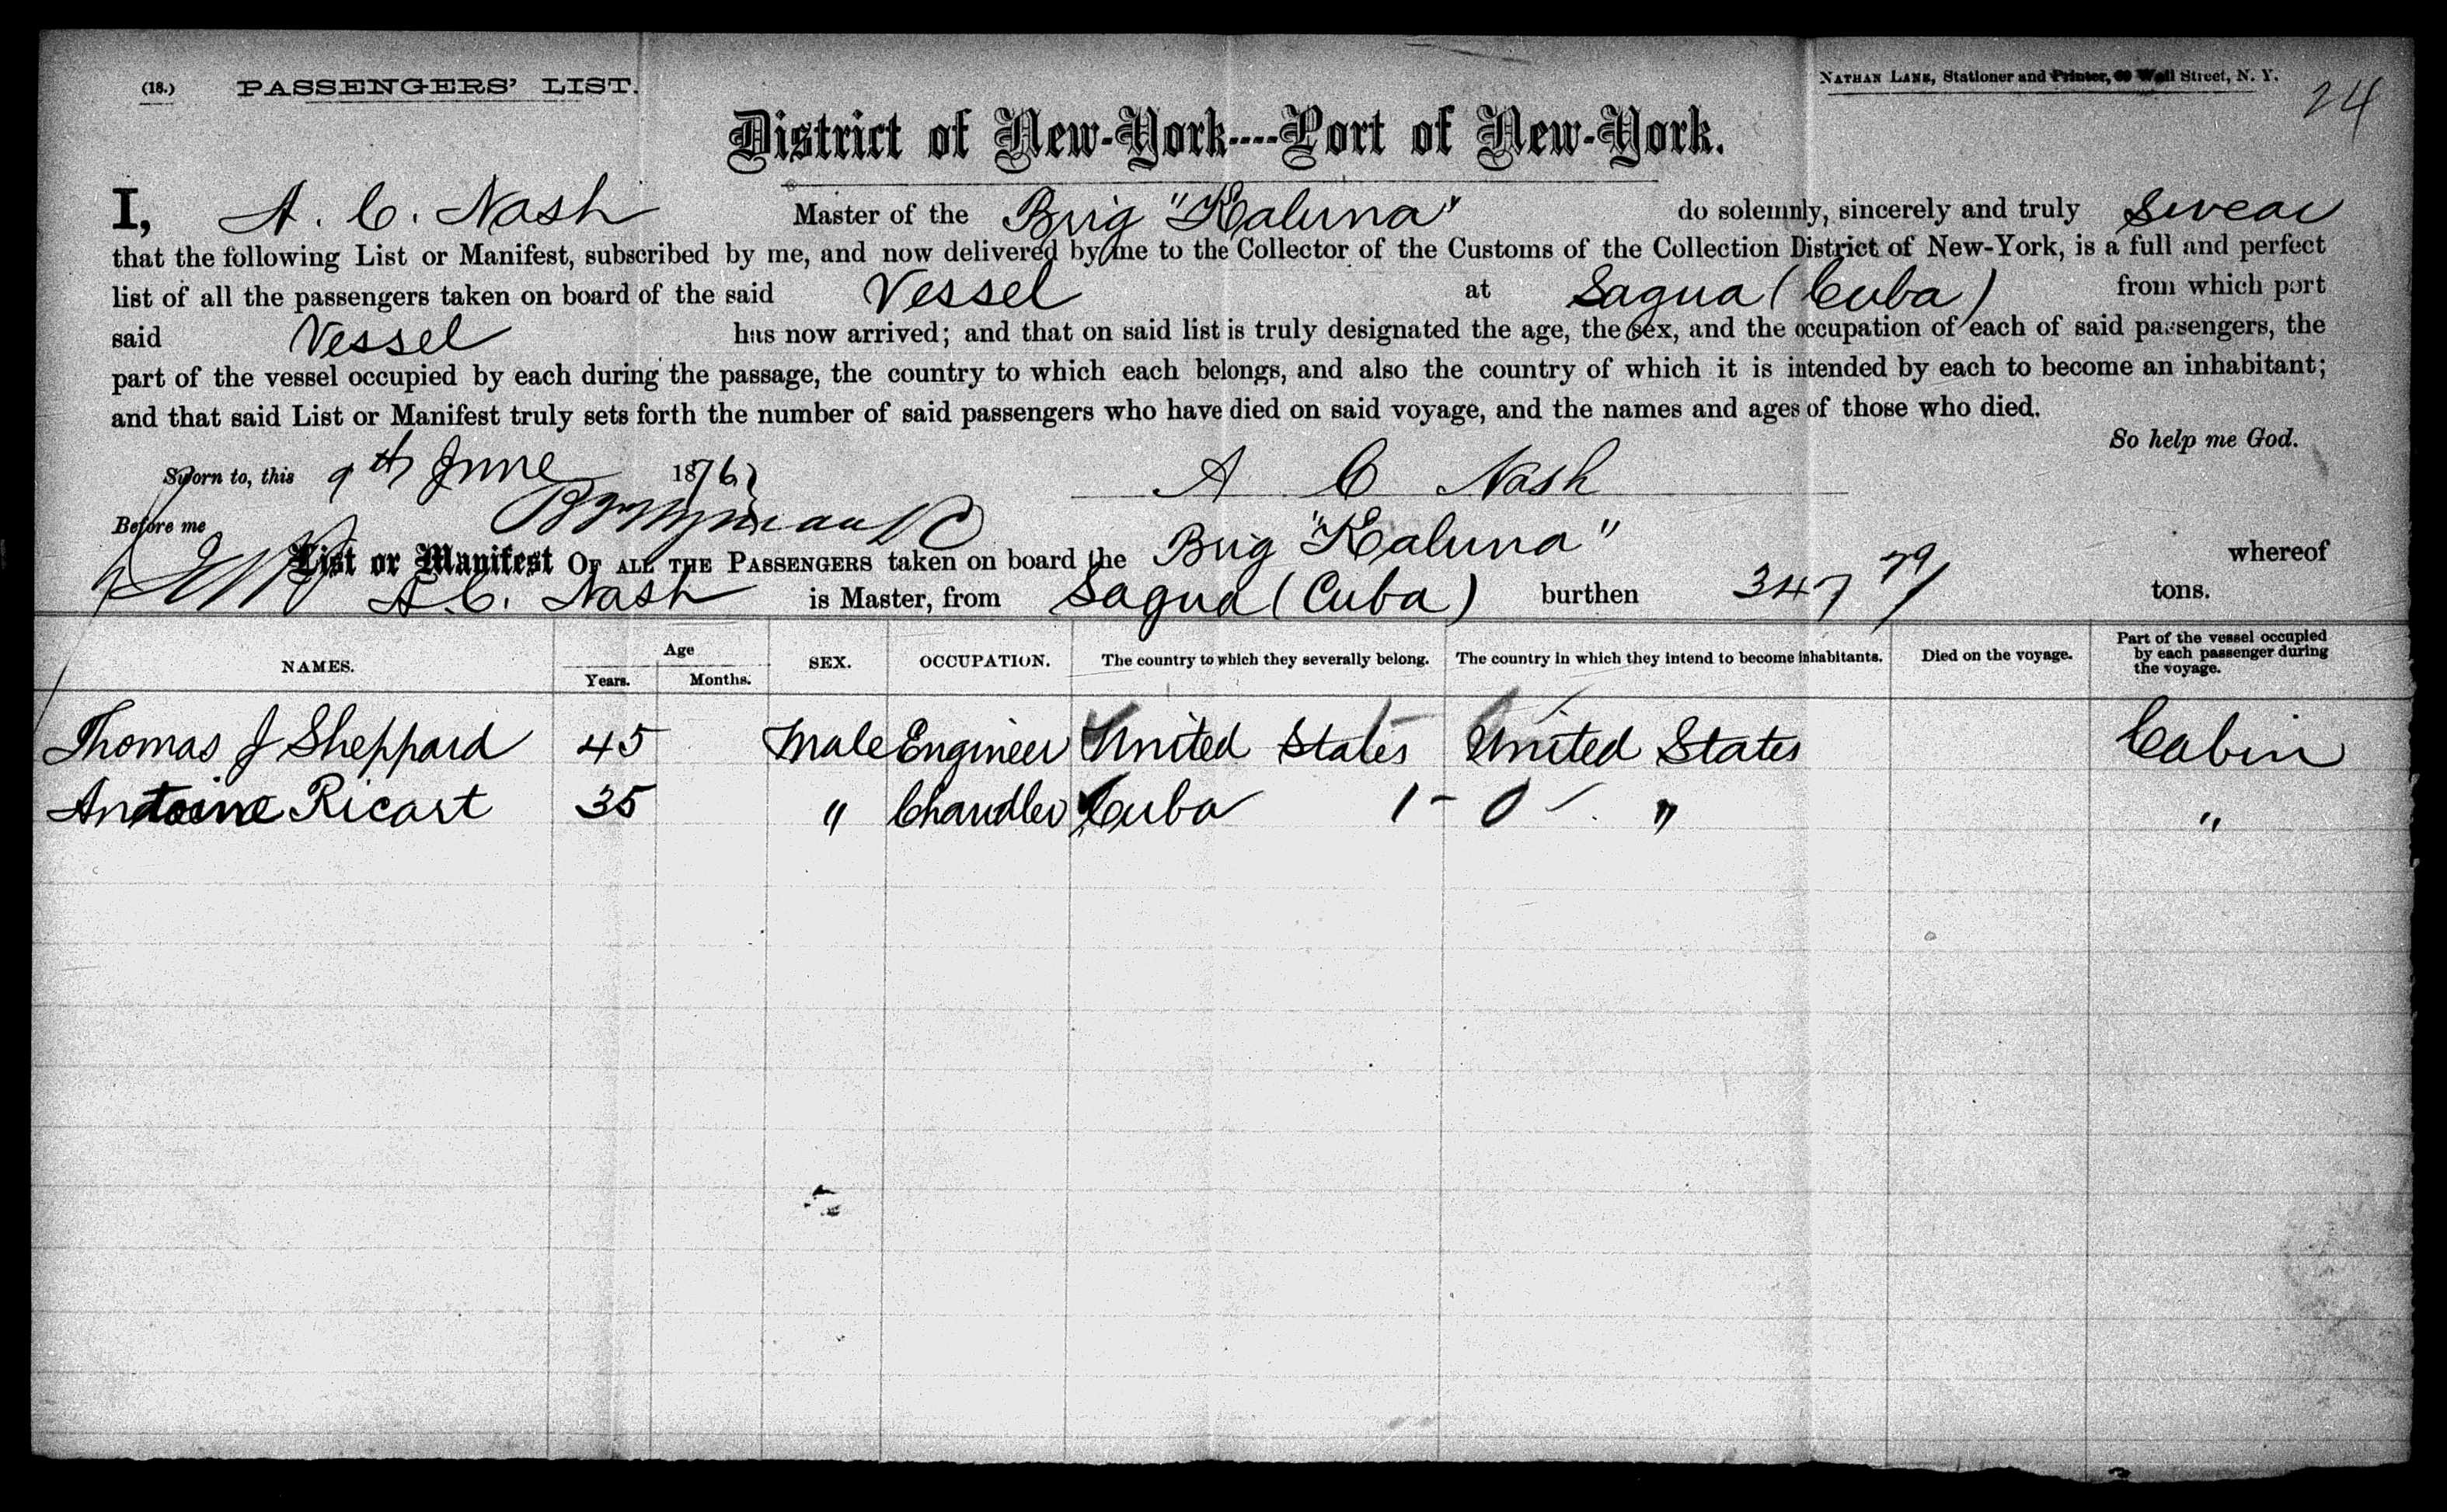 (18.) PASSENGERS' LIST.
NATHAN LANE, Stationer and Printer, 69 Wall Street, N. Y.
24
District of New-York----Port of New-York.
I, A. C. Nash Master of the Brig "Kaluna" do solemnly, sincerely and truly swear
that the following List or Manifest, subscribed by me, and now delivered by me to the Collector of the Customs of the Collection District of New-York, is a full and perfect
list of all the passengers taken on board of the said Vessel at Sagua (Cuba) from which port
said Vessel has now arrived; and that on said list is truly designated the age, the sex, and the occupation of each of said passengers, the
part of the vessel occupied by each during the passage, the country to which each belongs, and also the country of which it is intended by each to become an inhabitant;
and that said List or Manifest truly sets forth the number of said passengers who have died on said voyage, and the names and ages of those who died.
So help me God.
Sworn to, this 9th June 1876 A C Nash
Before me
List or Manifest OF ALL THE PASSENGERS taken on board the Brig "Kaluna" whereof
A. C. Nash is Master, from Sagua (Cuba) burthen 347 79/ tons.
NAMES. Age Years. Months. SEX. OCCUPATION. The country to which they severally belong. The country in which they intend to become inhabitants. Died on the voyage. Part of the vessel occupied by each passenger during the voyage.
Thomas J Sheppard 45 Male Engineer United States United States Cabin
Antoine Ricart 35 " Chandler Cuba 1 - 0 - " "